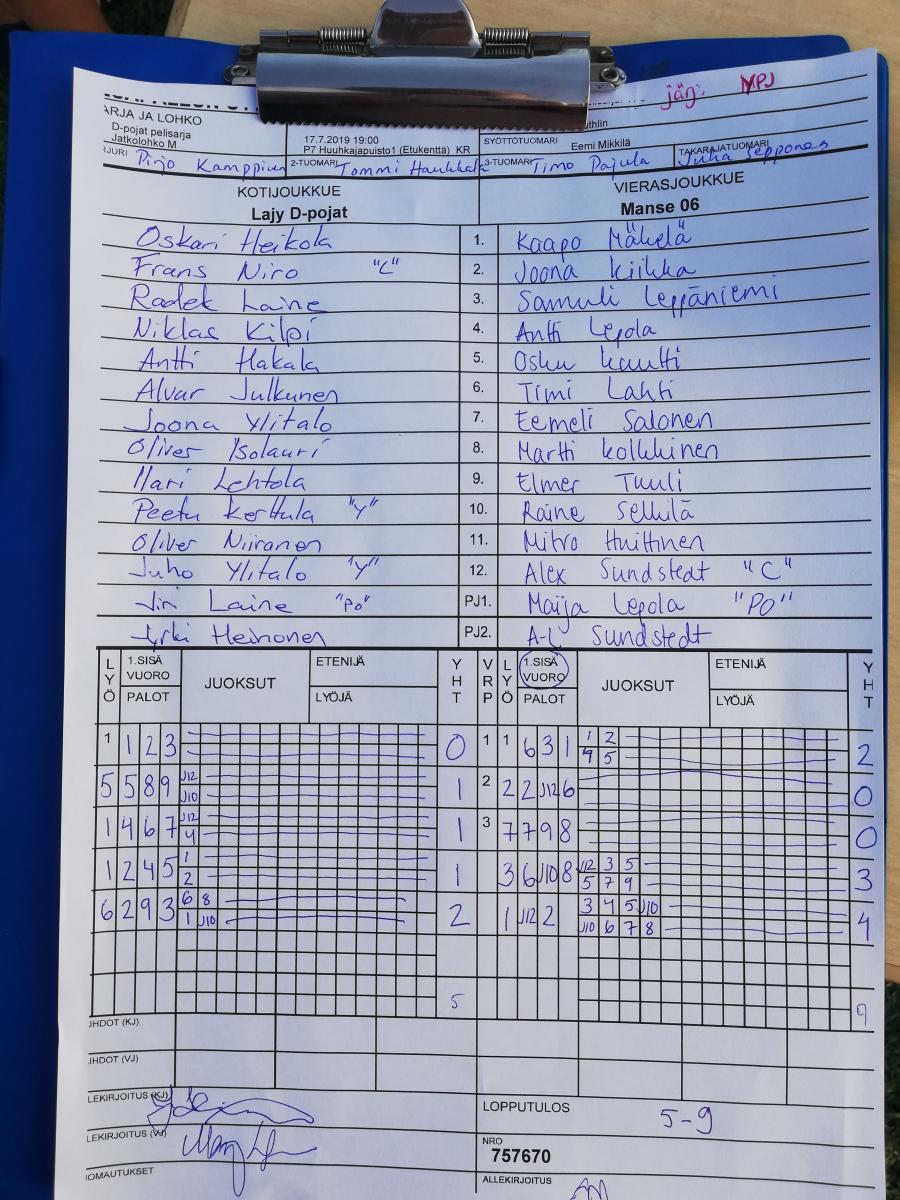 järj. MPJ
ARJA JA LOHKO
D-pojat pelisarja
Jatkolohko M
17.7.2019 19:00
P7 Huuhkajapuisto1 (Etukenttä) KR
SYÖTTÖTUOMARI
Eemi Mikkilä
2-TUOMARI Tommi
3-TUOMARI Timo Pajula
TAKARAJATUOMARI
KOTIJOUKKUE VIERASJOUKKUE
Lajy D-pojat Manse 06
Oskari Heikola 1. Kaapo Mäkelä
Frans Niro "C" 2. Joona Kiikka
Radek Laine 3. Samuli Leppäniemi
Niklas Kilpi 4. Antti Lepola
Antti Hakala 5. Osku Kautti
Alvar Julkunen 6. Timi Lahti
Joona Ylitalo 7. Eemeli Salonen
Oliver Isolauri 8. Martti Kolkkinen
Ilari Lehtola 9. Elmer Tuuli
Peetu Kerttula "Y" 10. Raine Sellilä
Oliver Niiranen 11. Mitro Huittinen
Juho Ylitalo "Y" 12. Alex Sundstedt "C"
Jiri Laine "Po" PJ1. Maija Lepola "PO"
Jyrki Heinonen PJ2. A-L Sundstedt
LYÖ 1.SISÄ VUORO PALOT JUOKSUT ETENIJÄ LYÖJÄ YHT VRP LYÖ 1.SISÄ VUORO PALOT JUOKSUT ETENIJÄ LYÖJÄ YHT
1 1 2 3 0 1 1 6 3 1 1 2 2
4 5
5 5 8 9 J12 1 2 2 2 J12 6 0
J10
1 4 6 7 J12 1 3 7 7 9 8 0
4
1 2 4 5 1 1 3 6 J10 8 J12 3 5 3
2 5 7 9
6 2 9 3 6 8 2 1 J12 2 3 4 5 J10 4
1 J10 J10 6 7 8
5 9
JHDOT (KJ)
JHDOT (VJ)
LEKIRJOITUS (KJ)
LOPPUTULOS 5-9
LEKIRJOITUS (VJ)
NRO
757670
IOMAUTUKSET
ALLEKIRJOITUS